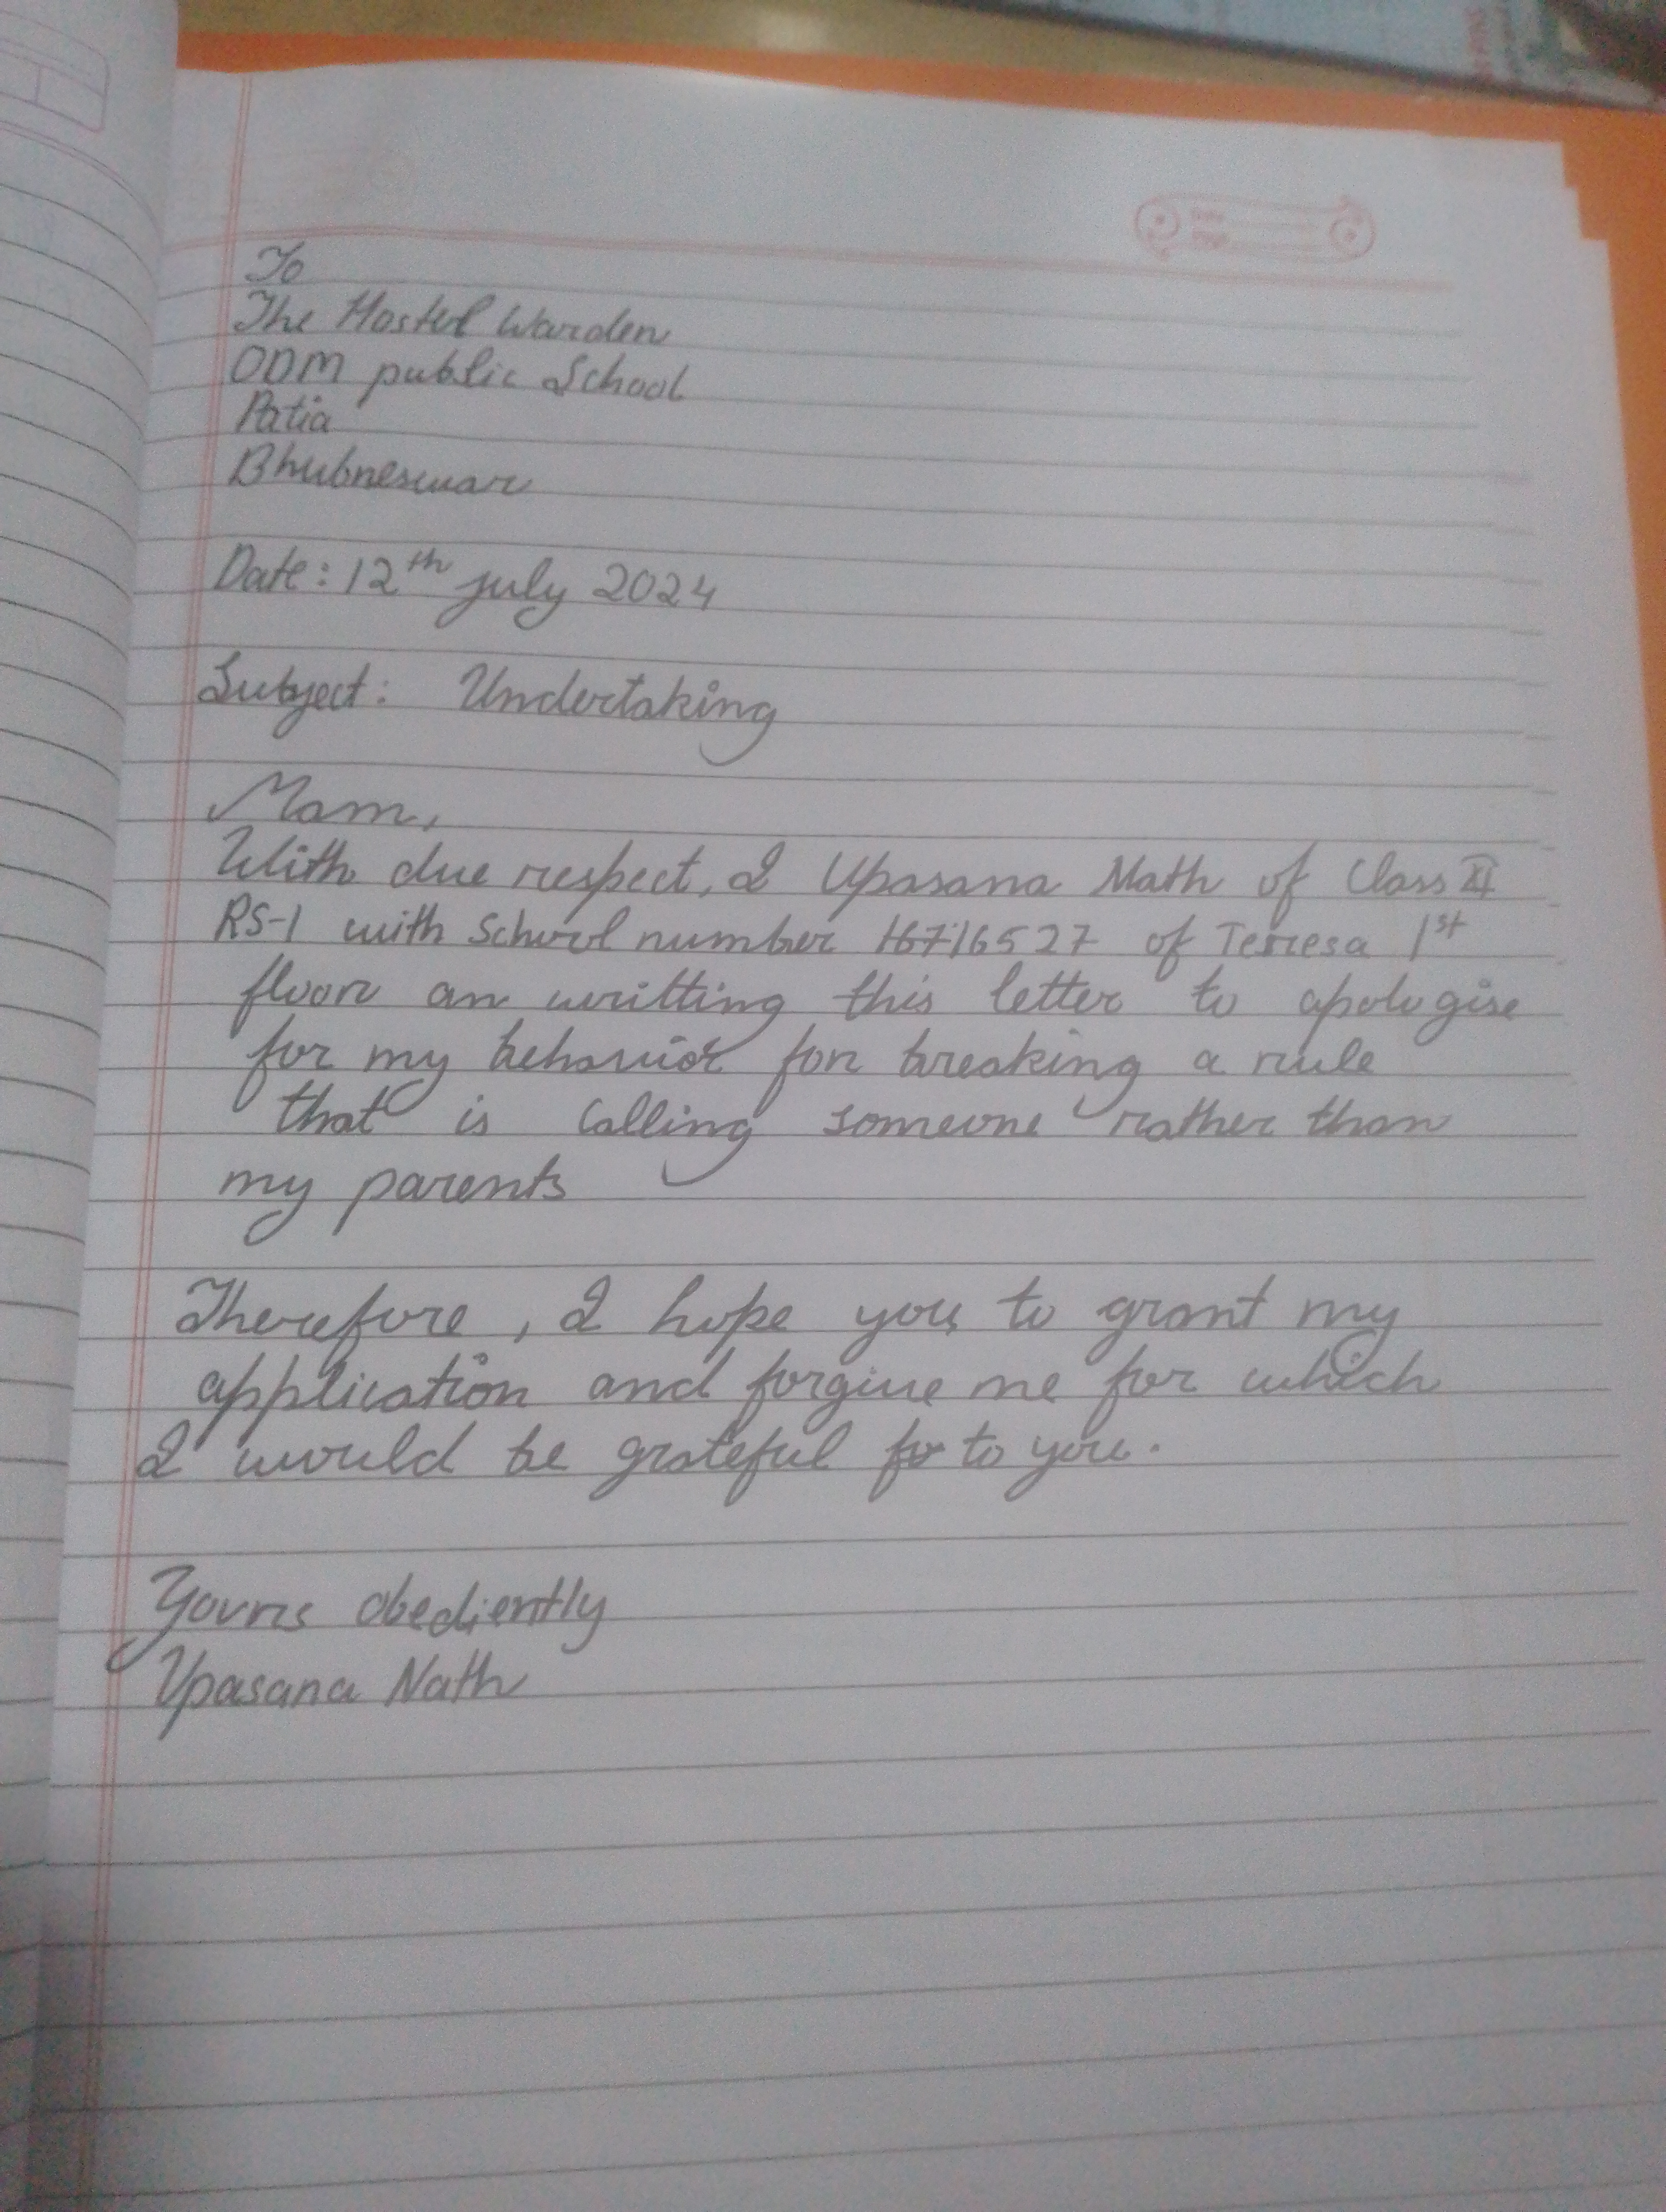 To
The Hostel Warden
ODM public School
Patia
Bhubneswar
Date: 12th july 2024
Subject: Undertaking
Mam,
With due respect, I Upasana Nath of Class XI
RS-1 with School number 16716527 of Terresa 1st
floor an writting this letter to apologise
for my behavior for breaking a rule
that is Calling someone rather than
my parents
Therefore, I hope you to grant my
application and forgive me for which
I would be grateful to you.
Yours obediently
Upasana Nath